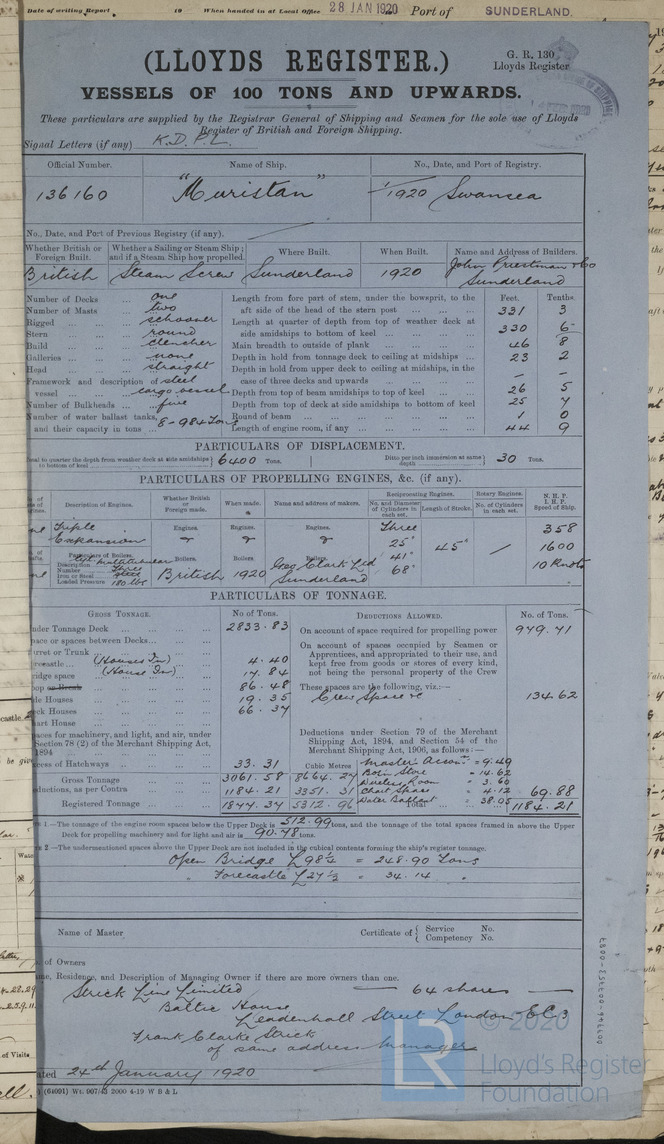 Date of writing Report 19 When handed in at Local Office 28 JAN 1920 Port of SUNDERLAND.
(LLOYDS REGISTER.)
G. R. 130
Lloyds Register
VESSELS OF 100 TONS AND UPWARDS.
These particulars are supplied by the Registrar General of Shipping and Seamen for the sole use of Lloyds
Register of British and Foreign Shipping.
Signal Letters (if any) K.D.P.L.
Official Number. Name of Ship. No., Date, and Port of Registry.
136160 "Muristan" 1/1920 Swansea
No., Date, and Port of Previous Registry (if any).
Whether British or Foreign Built. Whether a Sailing or Steam Ship; and if a Steam Ship how propelled. Where Built. When Built. Name and Address of Builders.
British Steam Screw Sunderland 1920 John Priestman & Co Sunderland
Feet. Tenths.
Number of Decks one
Number of Masts two
Rigged schooner
Stern round
Build clencher
Galleries none
Head straight
Framework and description of vessel steel cargo vessel
Number of Bulkheads five
Number of water ballast tanks, and their capacity in tons 8 - 984 Tons
Length from fore part of stem, under the bowsprit, to the
aft side of the head of the stern post 331 3
Length at quarter of depth from top of weather deck at
side amidships to bottom of keel 330 6
Main breadth to outside of plank 46 8
Depth in hold from tonnage deck to ceiling at midships 23 2
Depth in hold from upper deck to ceiling at midships, in the
case of three decks and upwards - -
Depth from top of beam amidships to top of keel 26 5
Depth from top of deck at side amidships to bottom of keel 25 7
Round of beam 1 0
Length of engine room, if any 44 9
PARTICULARS OF DISPLACEMENT.
to quarter the depth from weather deck at side amidships to bottom of keel 6400 Tons. Ditto per inch immersion at same depth 30 Tons.
PARTICULARS OF PROPELLING ENGINES, &c. (if any).
Description of Engines. Whether British or Foreign made. When made. Name and address of makers. Reciprocating Engines. No. and Diameter of Cylinders in each set. Length of Stroke. Rotary Engines. No. of Cylinders in each set. N.H.P. I.H.P. Speed of Ship.
Triple Expansion Engines. Engines. Engines. Three 25" 41" 68" 45" 358 1600 10 Knots
Particulars of Boilers.
Description
Number Three
Iron or Steel steel
Loaded Pressure 180 lbs
Boilers. British Boilers. 1920 Boilers. Geo. Clark Ltd Sunderland
PARTICULARS OF TONNAGE.
GROSS TONNAGE. No of Tons. DEDUCTIONS ALLOWED. No. of Tons.
Under Tonnage Deck 2833.83
Space or spaces between Decks
Turret or Trunk
Forecastle (House In) 4.40
Bridge space (House In) 17.84
Poop or Break 86.48
Side Houses 19.35
Deck Houses 66.37
Chart House
Spaces for machinery, and light, and air, under
Section 78 (2) of the Merchant Shipping Act,
1894
Excess of Hatchways 33.31
Cubic Metres
Gross Tonnage 3061.58 8664.27
Deductions, as per Contra 1184.21 3351.31
Registered Tonnage 1877.37 5312.96
On account of space required for propelling power 979.71
On account of spaces occupied by Seamen or
Apprentices, and appropriated to their use, and
kept free from goods or stores of every kind,
not being the personal property of the Crew
These spaces are the following, viz.:—
Crew Space &c 134.62
Deductions under Section 79 of the Merchant
Shipping Act, 1894, and Section 54 of the
Merchant Shipping Act, 1906, as follows:—
Master Accom = 9.49
Bosn Store = 14.62
Wireless Room = 3.60
Chart Space = 4.12
Water Ballast = 38.05
69.88
Total 1184.21
1.—The tonnage of the engine room spaces below the Upper Deck is 512.99 tons, and the tonnage of the total spaces framed in above the Upper
Deck for propelling machinery and for light and air is 90.78 tons.
2.—The undermentioned spaces above the Upper Deck are not included in the cubical contents forming the ship's register tonnage.
Open Bridge L 98½ = 248.90 Tons
" Forecastle L 27½ = 34.14 "
Name of Master Certificate of Service No. Competency No.
of Owners
Name, Residence, and Description of Managing Owner if there are more owners than one.
Strick Line Limited — 64 shares —
Baltic House
Leadenhall Street London E.C.3
Frank Clarke Strick
of same address Manager
Dated 24th January 1920
(64001) Wt. 907/43 2000 4-19 W B & L
LR © 2020
Lloyd's Register
Foundation